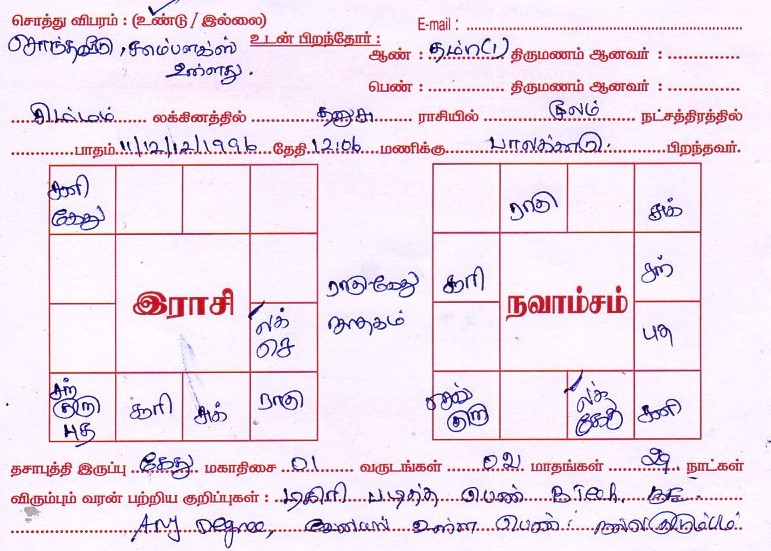 சொத்து விபரம் : (உண்டு / இல்லை) E-mail :
சொந்தவீடு, காம்பளக்ஸ் உடன் பிறந்தோர் : ஆண் : தம்பி(1) திருமணம் ஆனவர் :
உள்ளது. பெண் : திருமணம் ஆனவர் :
சிம்மம் லக்கினத்தில் தனுசு ராசியில் மூலம் நட்சத்திரத்தில்
பாதம் 11/12/12/1996 தேதி 12:06 மணிக்கு பாலக்காடு. பிறந்தவர்.
சனி
கேது
இராசி
லக்
செ
சந்
குரு
புத
சூரி
சுக்
ராகு
ராகு-கேது
ஜாதகம்
ராகு
சுக்
சூரி
நவாம்சம்
சந்
புத
செவ்
குரு
லக்
கேது
சனி
தசாபுத்தி இருப்பு கேது மகாதிசை 01 வருடங்கள் 02 மாதங்கள் 29 நாட்கள்
விரும்பும் வரன் பற்றிய குறிப்புகள் : டிகிரி படித்த பெண் B.Tech. B.E.
Any Degree, வேலையில் உள்ள பெண் நல்லகுடும்பம்